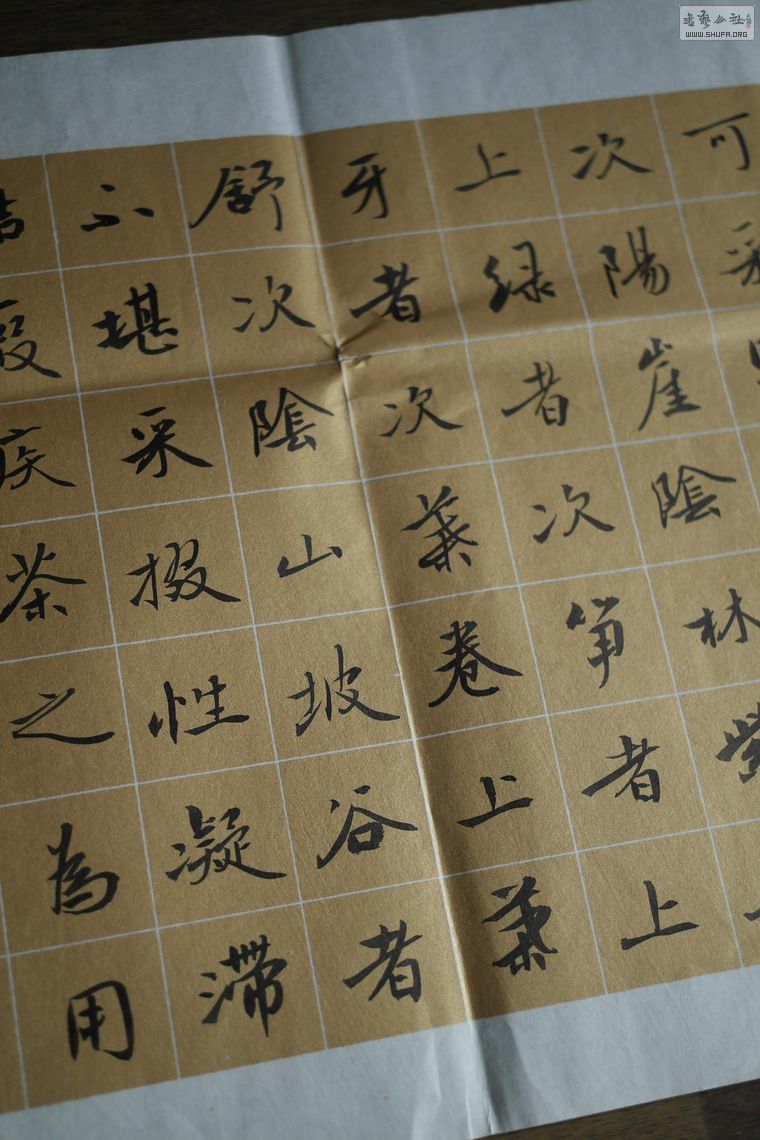 可采
次陽崖陰林紫
上緑者次笋者上
牙者次葉卷上葉
舒次陰山坡谷者
不堪采掇性凝滯
結瘕疾茶之為用
書藝公社
WWW.SHUFA.ORG